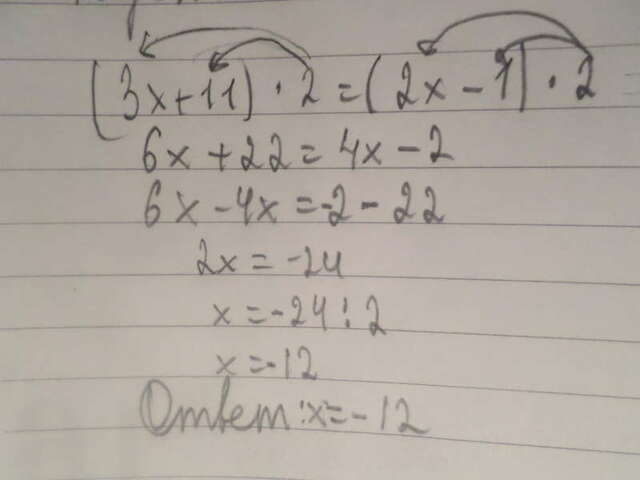 (3x+11)·2=(2x-1)·2
6x+22=4x-2
6x-4x=-2-22
2x=-24
x=-24:2
x=-12
Ответ:x=-12